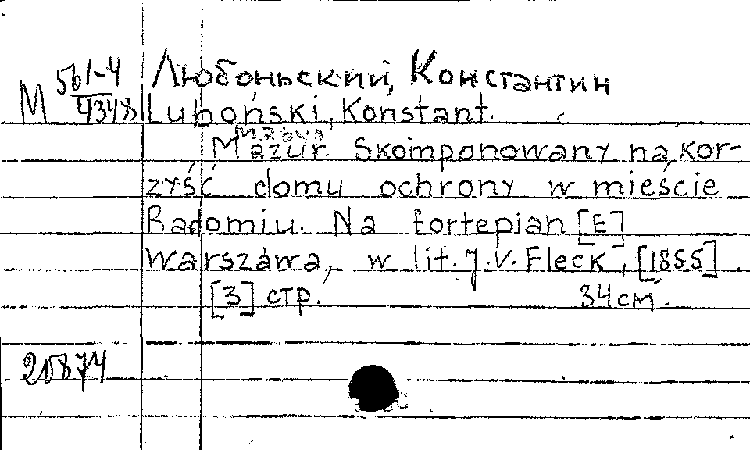 М 561-4
4348
Любоньский, Константин
Luboński, Konstant.
Mazur. Skomponowany na kor-
zyść domu ochrony w mieście
Radomiu. Na fortepian [E]
Warszawa, w lit. J. V. Fleck, [1855]
[3] стр. 34 см.
20874